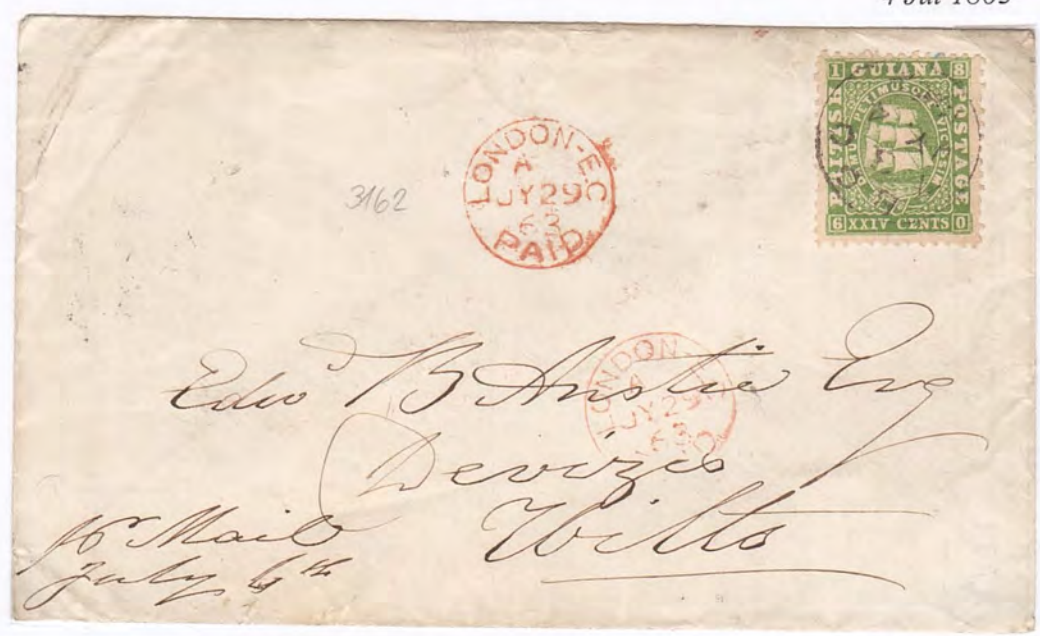 1 GUIANA 8
BRITISH
POSTAGE
DAMUS PETIMUSQUE VICISSIM
6 XXIV CENTS 0
LONDON-E.C
A
JY 29
63
PAID
3162
LONDON
JY 29
63
Edwd B Anstie Esq
Devizes
Wilts
pr Mail
July 6th